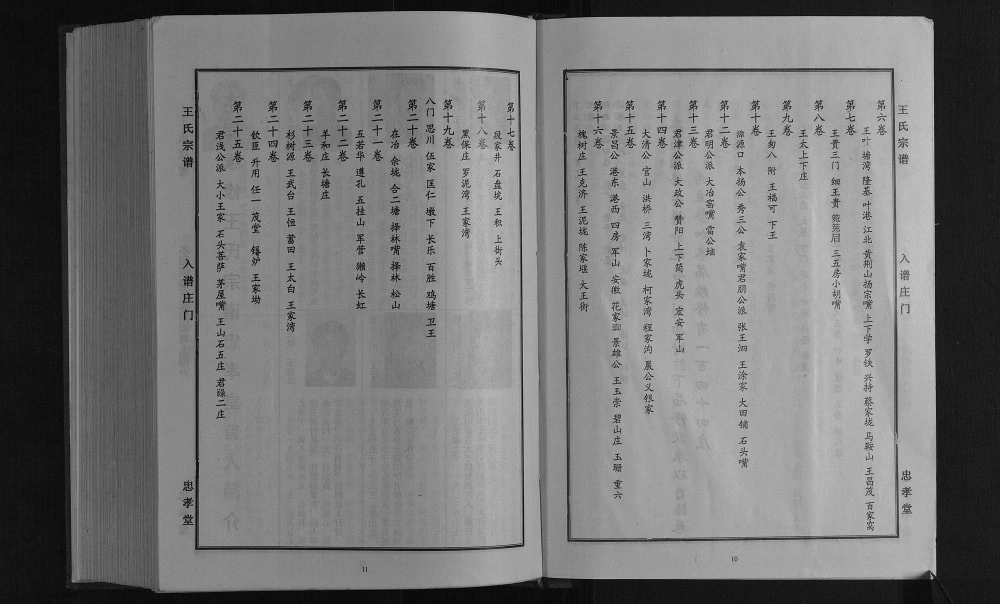 王氏宗谱
入谱庄门
忠孝堂
第六卷
王叶 塘湾 隆基 叶港 江北 黄荆山扬宗嘴 上下学 罗铁 兴持 蔡家垅 马鞍山 王昌茂 百家窝
第七卷
王贵三门 细王贵 三五房小胡嘴
第八卷
王太上下庄
第九卷
王匆八 附 王福可 下王
第十卷
漳源口 本扬公 秀三公 袁家嘴君朋公派 张王泗 王涂家 大田铺 石头嘴
第十二卷
君明公派 大冶窑嘴 雷公垴
第十三卷
君津公派 大政公 赞阳 上下简 虎头 宏安 军山
第十四卷
大清公 官山 洪桥 三湾 卜家垅 柯家湾 程家沟 晨公义银家
第十五卷
景昌公 港东 港西 四房 军山 安徽 花家 景雄公 王玉崇 碧山庄 玉珊 重六
第十六卷
槐树庄 王克济 王泥垅 陈家堰 大王街
10
第十七卷
段家井 石盘垅 王积 上街头
第十八卷
黑保庄 罗泥湾 王家湾
第十九卷
八门 思川 伍家 匡仁 墩下 长乐 百胜 鸡塘 卫王
第二十卷
在冶 余垅 合二塘 择林嘴 择林 松山
第二十一卷
五若华 遵孔 五挂山 军营 獭岭 长虹
第二十二卷
羊和庄 长塘庄
第二十三卷
杉树源 王武台 王恒 菖田 王太白 王家湾
第二十四卷
钦臣 升用 任一 茂堂 锝炉 王家坳
第二十五卷
君浅公派 大小王家 石头菩萨 茅屋嘴 王山石五庄 君禄二庄
王氏宗谱
入谱庄门
忠孝堂
11